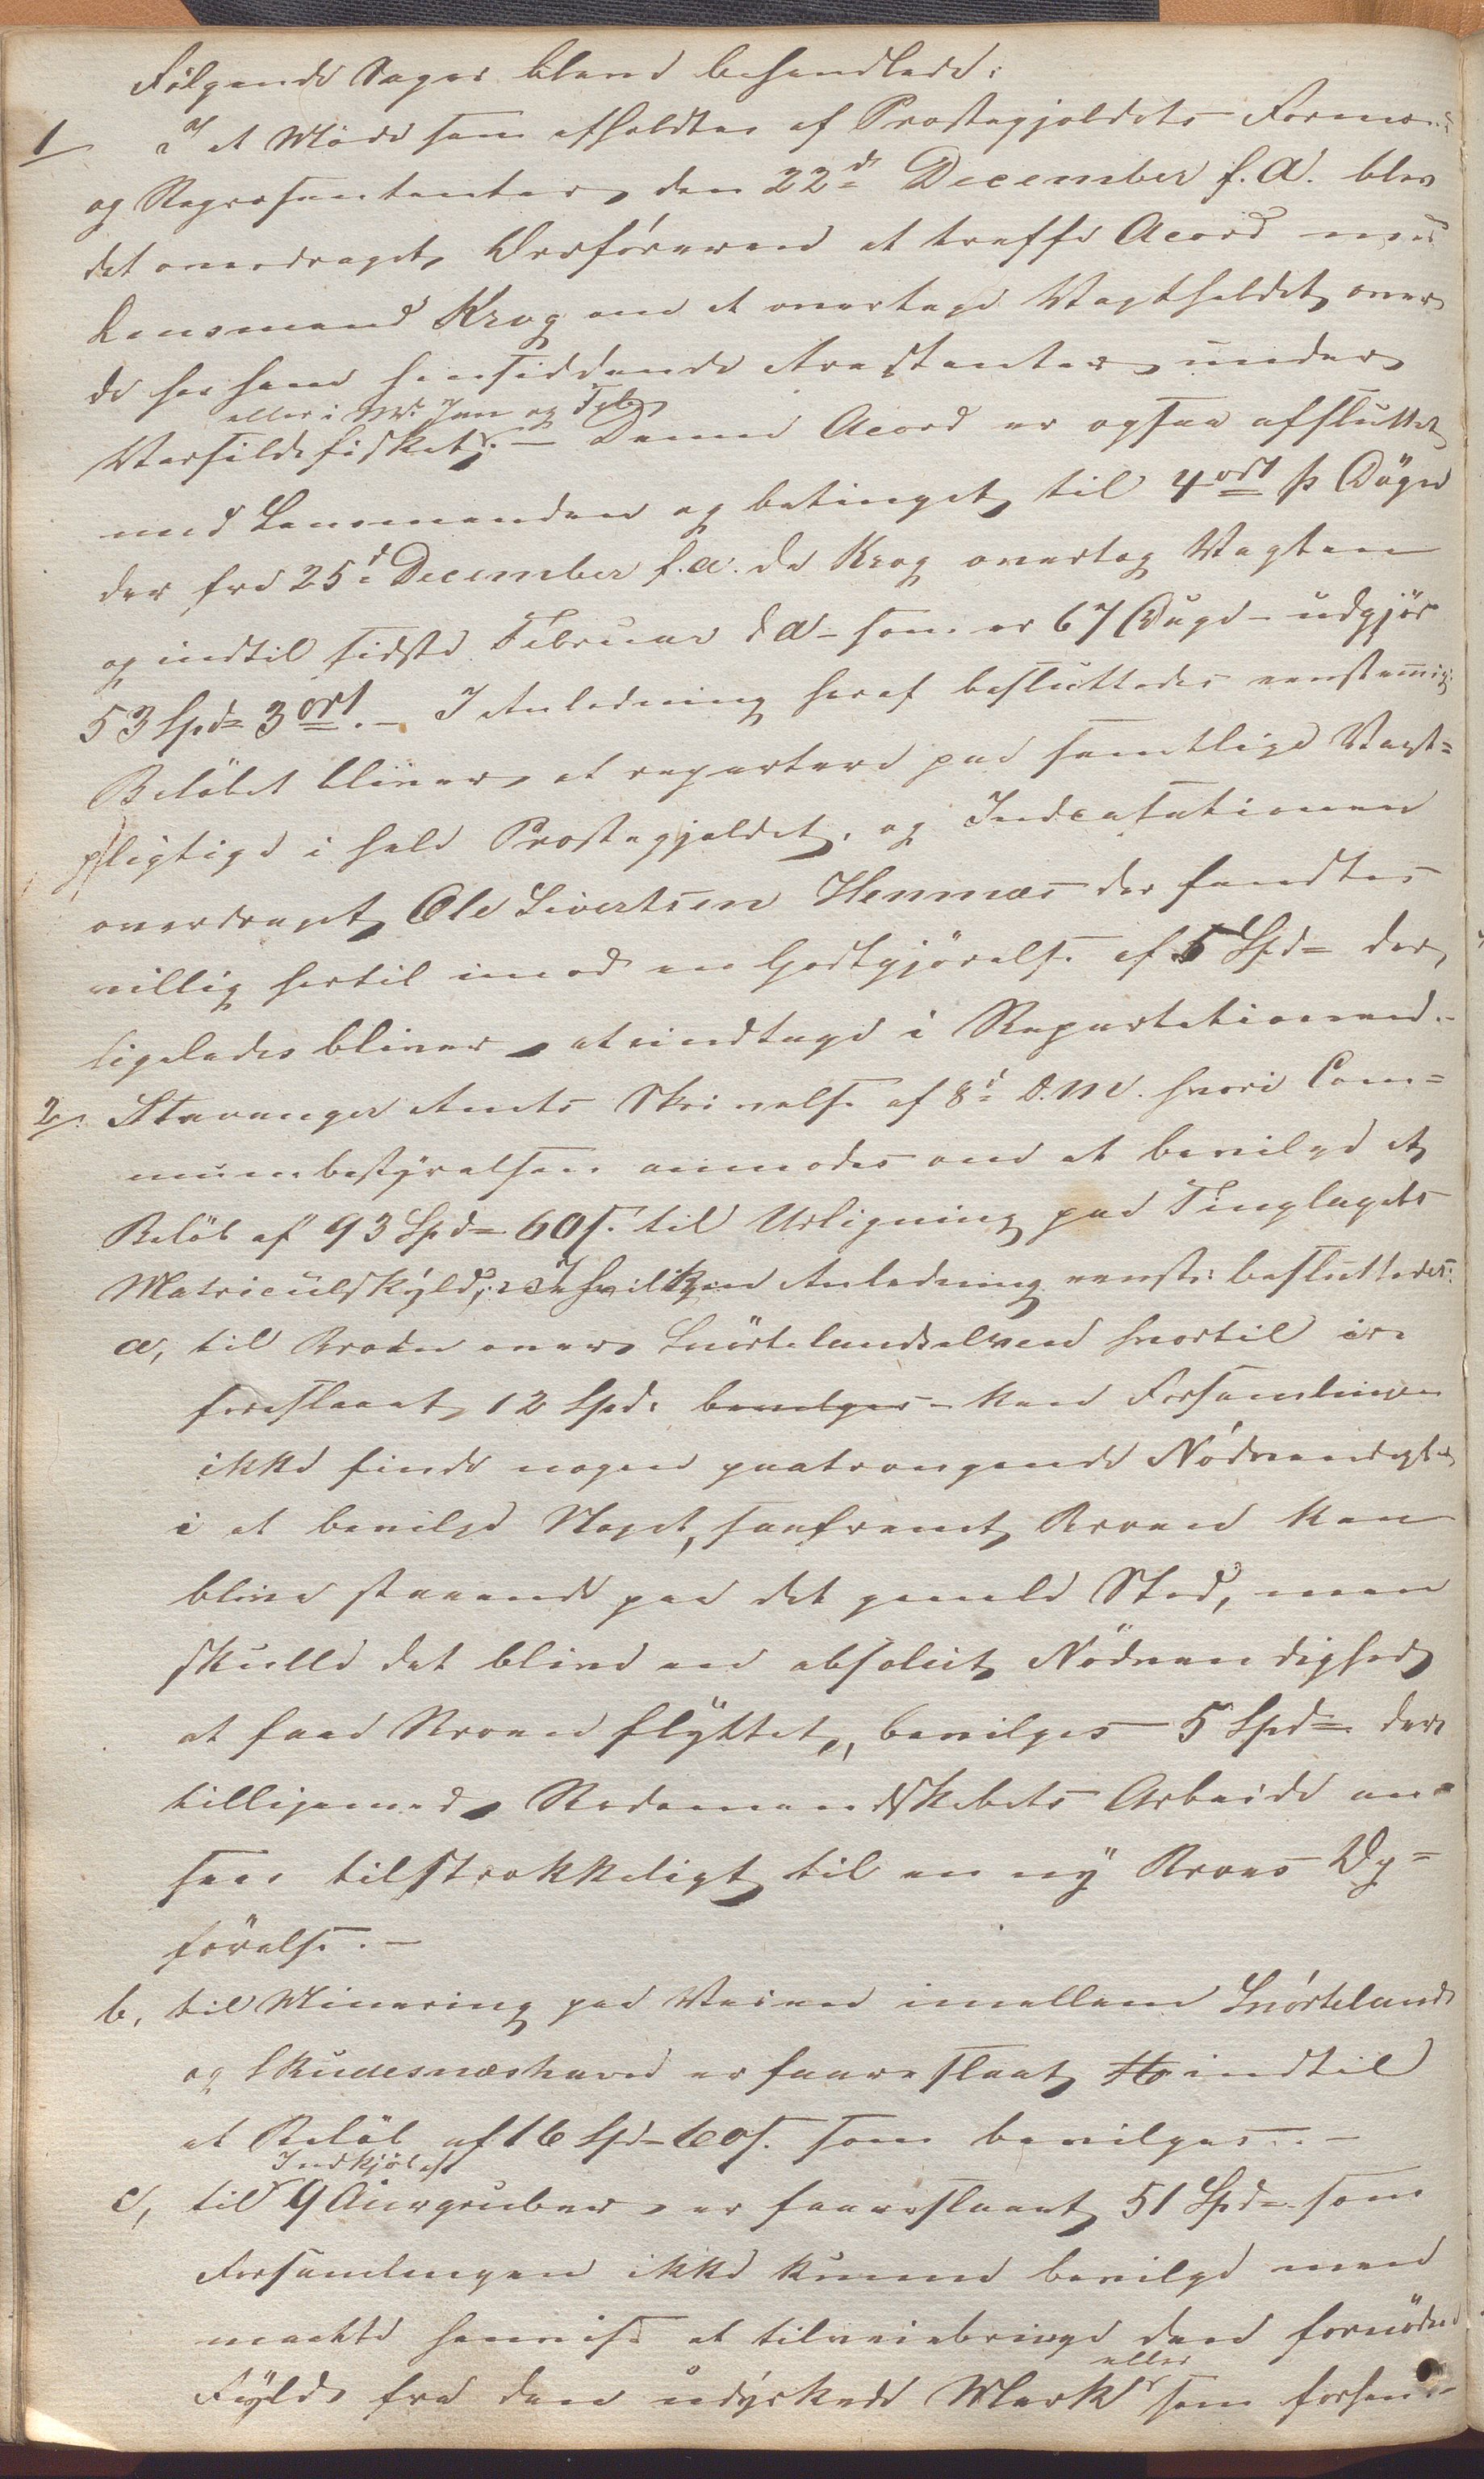 Følgende Sager blev behandlede:
1 I et Møde som afholdtes af Præstegjeldets Formænd
og Repræsentanter den 22de December f. A. blev
det overdraget Ordføreren at træffe Acord med
Lensmand Krog om at overtage Vagtholdet over
de hos ham hensiddende Arestanter under
eller i Mr. Jan og Feb.
Vaarsildefisket. – Denne Acord er ogsaa afsluttet
med Lensmanden og betinget til 4 ort pr Døgn
der fra 25de December f. a. da Krog overtog Vagten
og indtil sidste Februar d A – som er 67 Døgn – udgjør
53 Spd 3 ort. – I Anledning heraf besluttedes eenstemig:
Beløbet bliver at repartere paa samtlige Vagt=
pligtige i hele Præstegjeldet, og Indcasationen
overdraget Ole Sivertsen Hemnæs der fandtes
villig hertil imod en Godtgjørelse af 5 Spd der
ligeledes bliver at indtage i Repartitionen. –
2, Stavanger Amts Skrivelse af 8de d. M. hvori Com=
munebestyrelsen anmodes om at bevilge et
Beløb af 93 Spd 60 s. til Udligning paa Tinglagets
Matriculskyld; i hvilken Anledning eenst: besluttedes:
a, til Broen over Snörtelandselven hvortil er
foreslaaet 12 Spd. bevilges – kan Forsamlingen
ikke finde nogen paatrængende Nødvendighed
i at bevilge Noget, saafremt Broen kan
blive staaende paa det gamle Sted, men
skulle det blive en absolut Nødvendighed
at faae Broen flyttet, bevilges 5 Spd der
tilligemed Rodemandskabets Arbeide an=
sees tilstrækkeligt til en ny Broes Op=
førelse. –
b, til Minering paa Veien imellem Snórteland
og Skudesnæshavn er foreslaaet indtil
et Beløb af 16 Spd 60 s. som bevilges. –
Indkjøb af
c, til 9 Auurgruber er foreslaaet 51 Spd som
Forsamlingen ikke kunne bevilge men
maatte henvise at tilveiebringe den fornødne
eller
Fylde fra den udyrkede Mark som forhen=